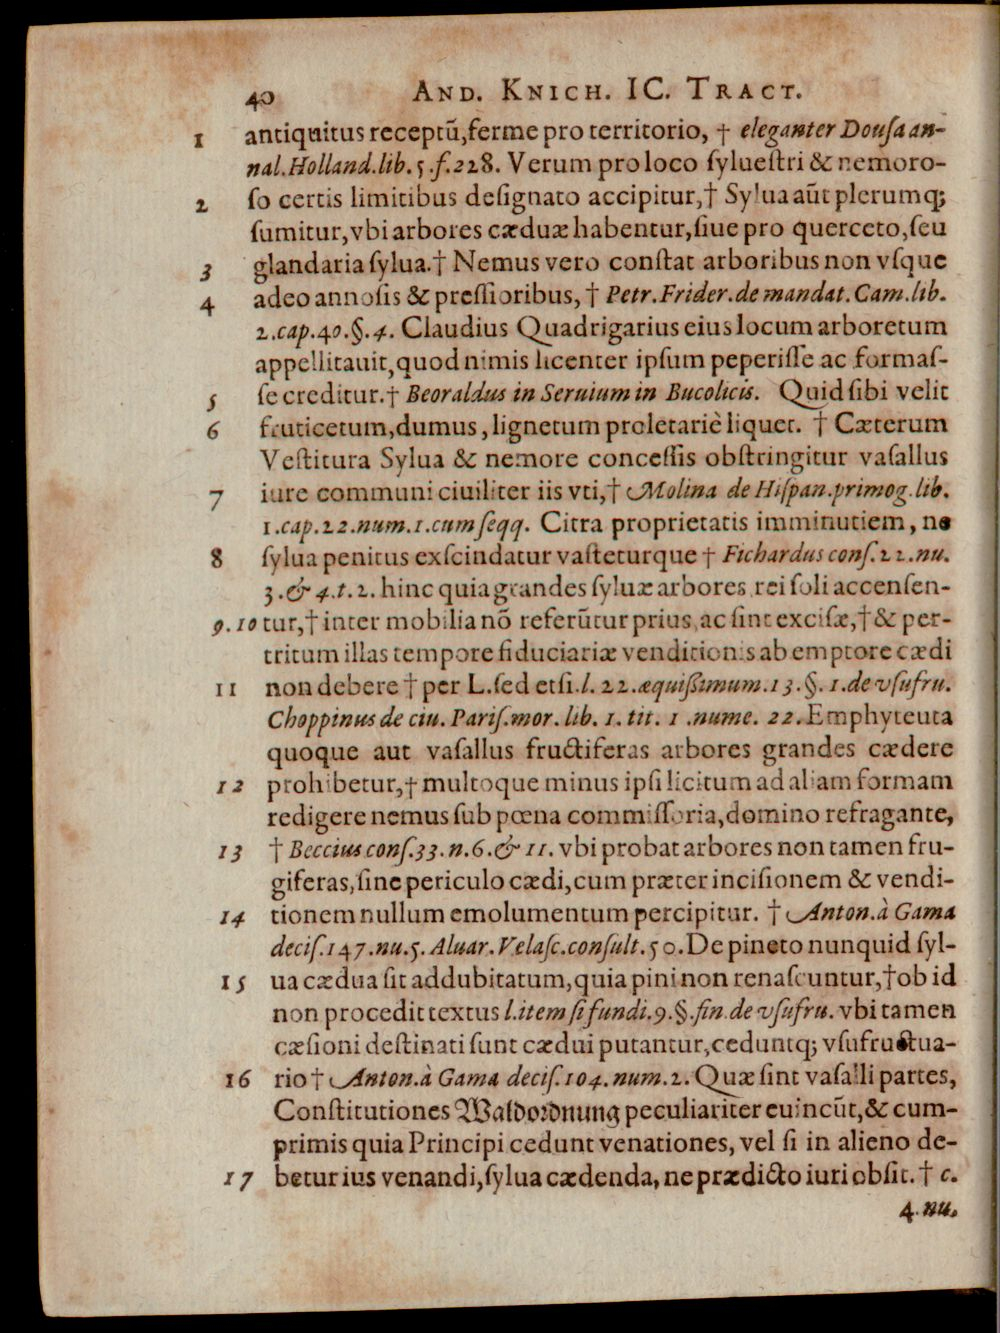 40 AND. KNICH. IC. TRACT.
1 antiquitus receptũ, ferme pro territorio, † eleganter Douſa an-
nal. Holland. lib. 5. f. 228. Verum pro loco ſylueſtri & nemoro-
2 ſo certis limitibus deſignato accipitur, † Sylua aũt plerumq;
ſumitur, vbi arbores cæduæ habentur, ſiue pro querceto, ſeu
3 glandaria ſylua. † Nemus vero conſtat arboribus non vſque
4 adeo annoſis & preſſioribus, † Petr. Frider. de mandat. Cam. lib.
2. cap. 40. §. 4. Claudius Quadrigarius eius locum arboretum
appellitauit, quod nimis licenter ipſum peperiſſe ac formaſ-
5 ſe creditur. † Beoraldus in Seruium in Bucolicis. Quid ſibi velit
6 fruticetum, dumus, lignetum proletariè liquet. † Cæterum
Veſtitura Sylua & nemore conceſſis obſtringitur vaſallus
7 iure communi ciuiliter iis vti, † Molina de Hiſpan. primog. lib.
1. cap. 22. num. 1. cum ſeqq. Citra proprietatis imminutiem, ne
8 ſylua penitus exſcindatur vaſteturque † Fichardus conſ. 22. nu.
3. & 4. t. 2. hinc quia grandes ſyluæ arbores rei ſoli accenſen-
9. 10 tur, † inter mobilia nõ referũtur prius, ac ſint exciſæ, † & per-
tritum illas tempore fiduciariæ venditionis ab emptore cædi
11 non debere † per L. ſed etſi. l. 22. æquiſſimum. 13. §. 1. de vſufru.
Choppinus de ciu. Pariſ. mor. lib. 1. tit. 1. nume. 22. Emphyteuta
quoque aut vaſallus fructiferas arbores grandes cædere
12 prohibetur, † multoque minus ipſi licitum ad aliam formam
redigere nemus ſub pœna commiſſoria, domino refragante,
13 † Beccius conſ. 33. n. 6. & 11. vbi probat arbores non tamen fru-
giferas, ſine periculo cædi, cum præter inciſionem & vendi-
14 tionem nullum emolumentum percipitur. † Anton. à Gama
deciſ. 147. nu. 5. Aluar. Velaſc. conſult. 50. De pineto nunquid ſyl-
15 ua cædua ſit addubitatum, quia pini non renaſcuntur, † ob id
non procedit textus l. item ſi fundi. 9. §. fin. de vſufru. vbi tamen
cæſioni deſtinati ſunt cædui putantur, ceduntq; vſufructua-
16 rio † Anton. à Gama deciſ. 104. num. 2. Quæ ſint vaſalli partes,
Conſtitutiones Waldordnung peculiariter euincũt, & cum-
primis quia Principi cedunt venationes, vel ſi in alieno de-
17 betur ius venandi, ſylua cædenda, ne prædicto iuri obſit. † c.
4. nu.